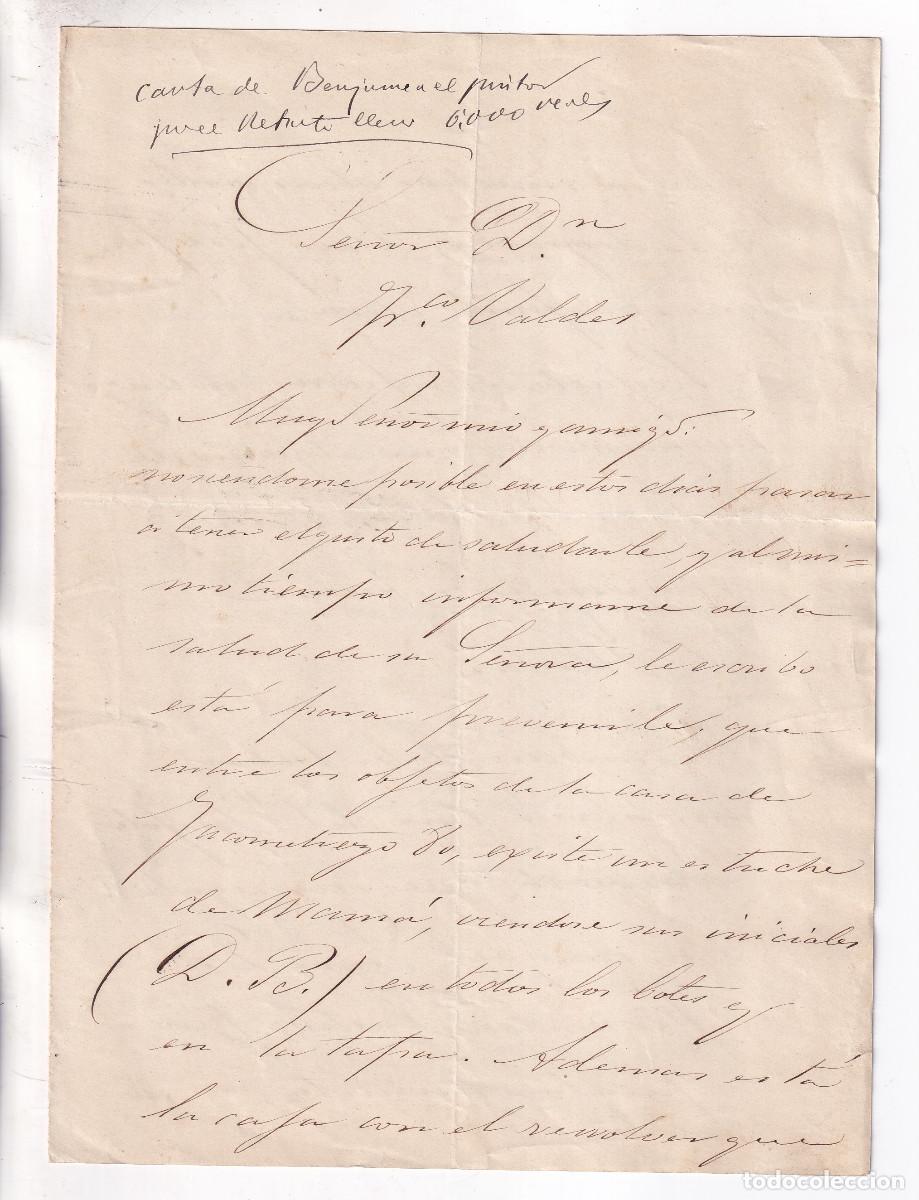 carta de Benjumea el pintor
por el Retrato llevo 6,000 reales
Señor Dn
Frco. Valdes
Muy Señor mio y amigo:
no siéndome posible en estos dias pasar
á tener el gusto de saludarle, y al mis=
mo tiempo informarme de la
salud de su Señora, le escribo
está para prevenirle, que
entre los objetos de la casa de
Jacometrezo 80, existe un estuche
de Mamá, viendose sus iniciales
(D. B.) en todos los botes y
en la tapa. Ademas está
la caja con el revolver que
todocoleccion